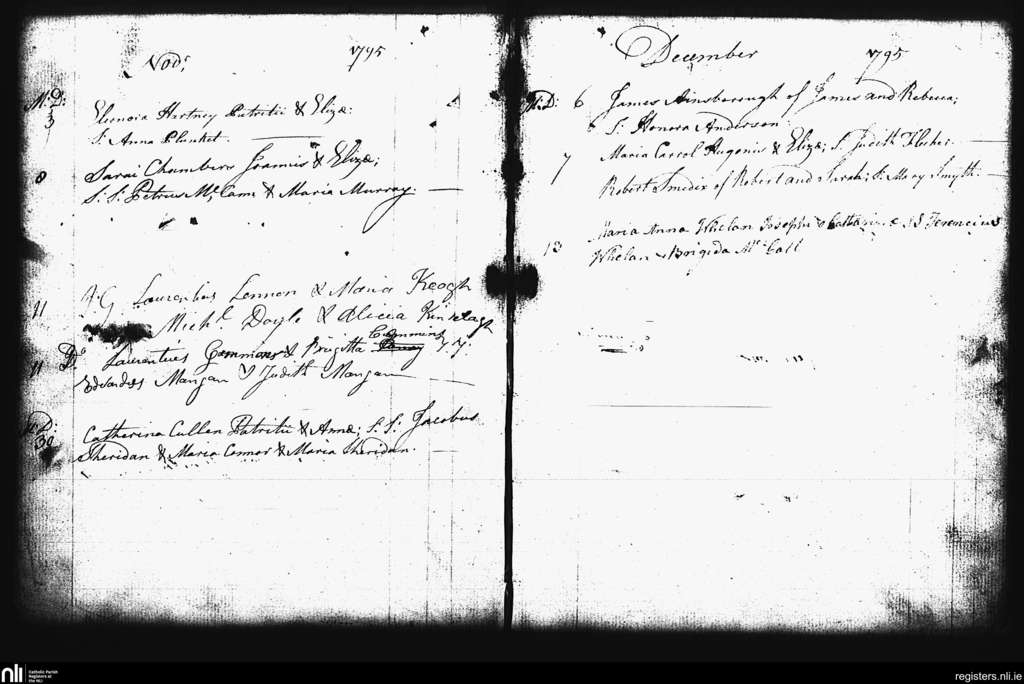 Novr. 1795
M: D:
3 Elenoia Hartney Patritii & Elizæ:
S: Anna Plunket.
8 Sarai Chambers Joannis & Elizæ;
S: S: Petrus Mc Cann & Maria Murray.
11 J. G Laurentius Lennon & Maria Keogh
Michl. Doyle & Alicia Kinselagh
Cummins
11 Do. Laurentius Gemmons & Brigitta
Edvardus Mangan & Judith Mangan
M: D:
30 Catherina Cullen Patritii & Annæ; S. S: Jacobus
Sheridan & Maria Connor & Maria Sheridan.
December 1795
M: D: 6 James Ainsborough of James and Rebecca;
S: Honora Anderson.
7 Maria Carrol Eugenii & Elizæ; S. Judith Flusher.
Robert Smedix of Robert and Sarah; S: Mary Smyth.
13 Maria Anna Whelan Josephi & Catharinæ SS Terencius
Whelan & Brigida Mc Call
nli
Catholic Parish
Registers at
the NLI
registers.nli.ie